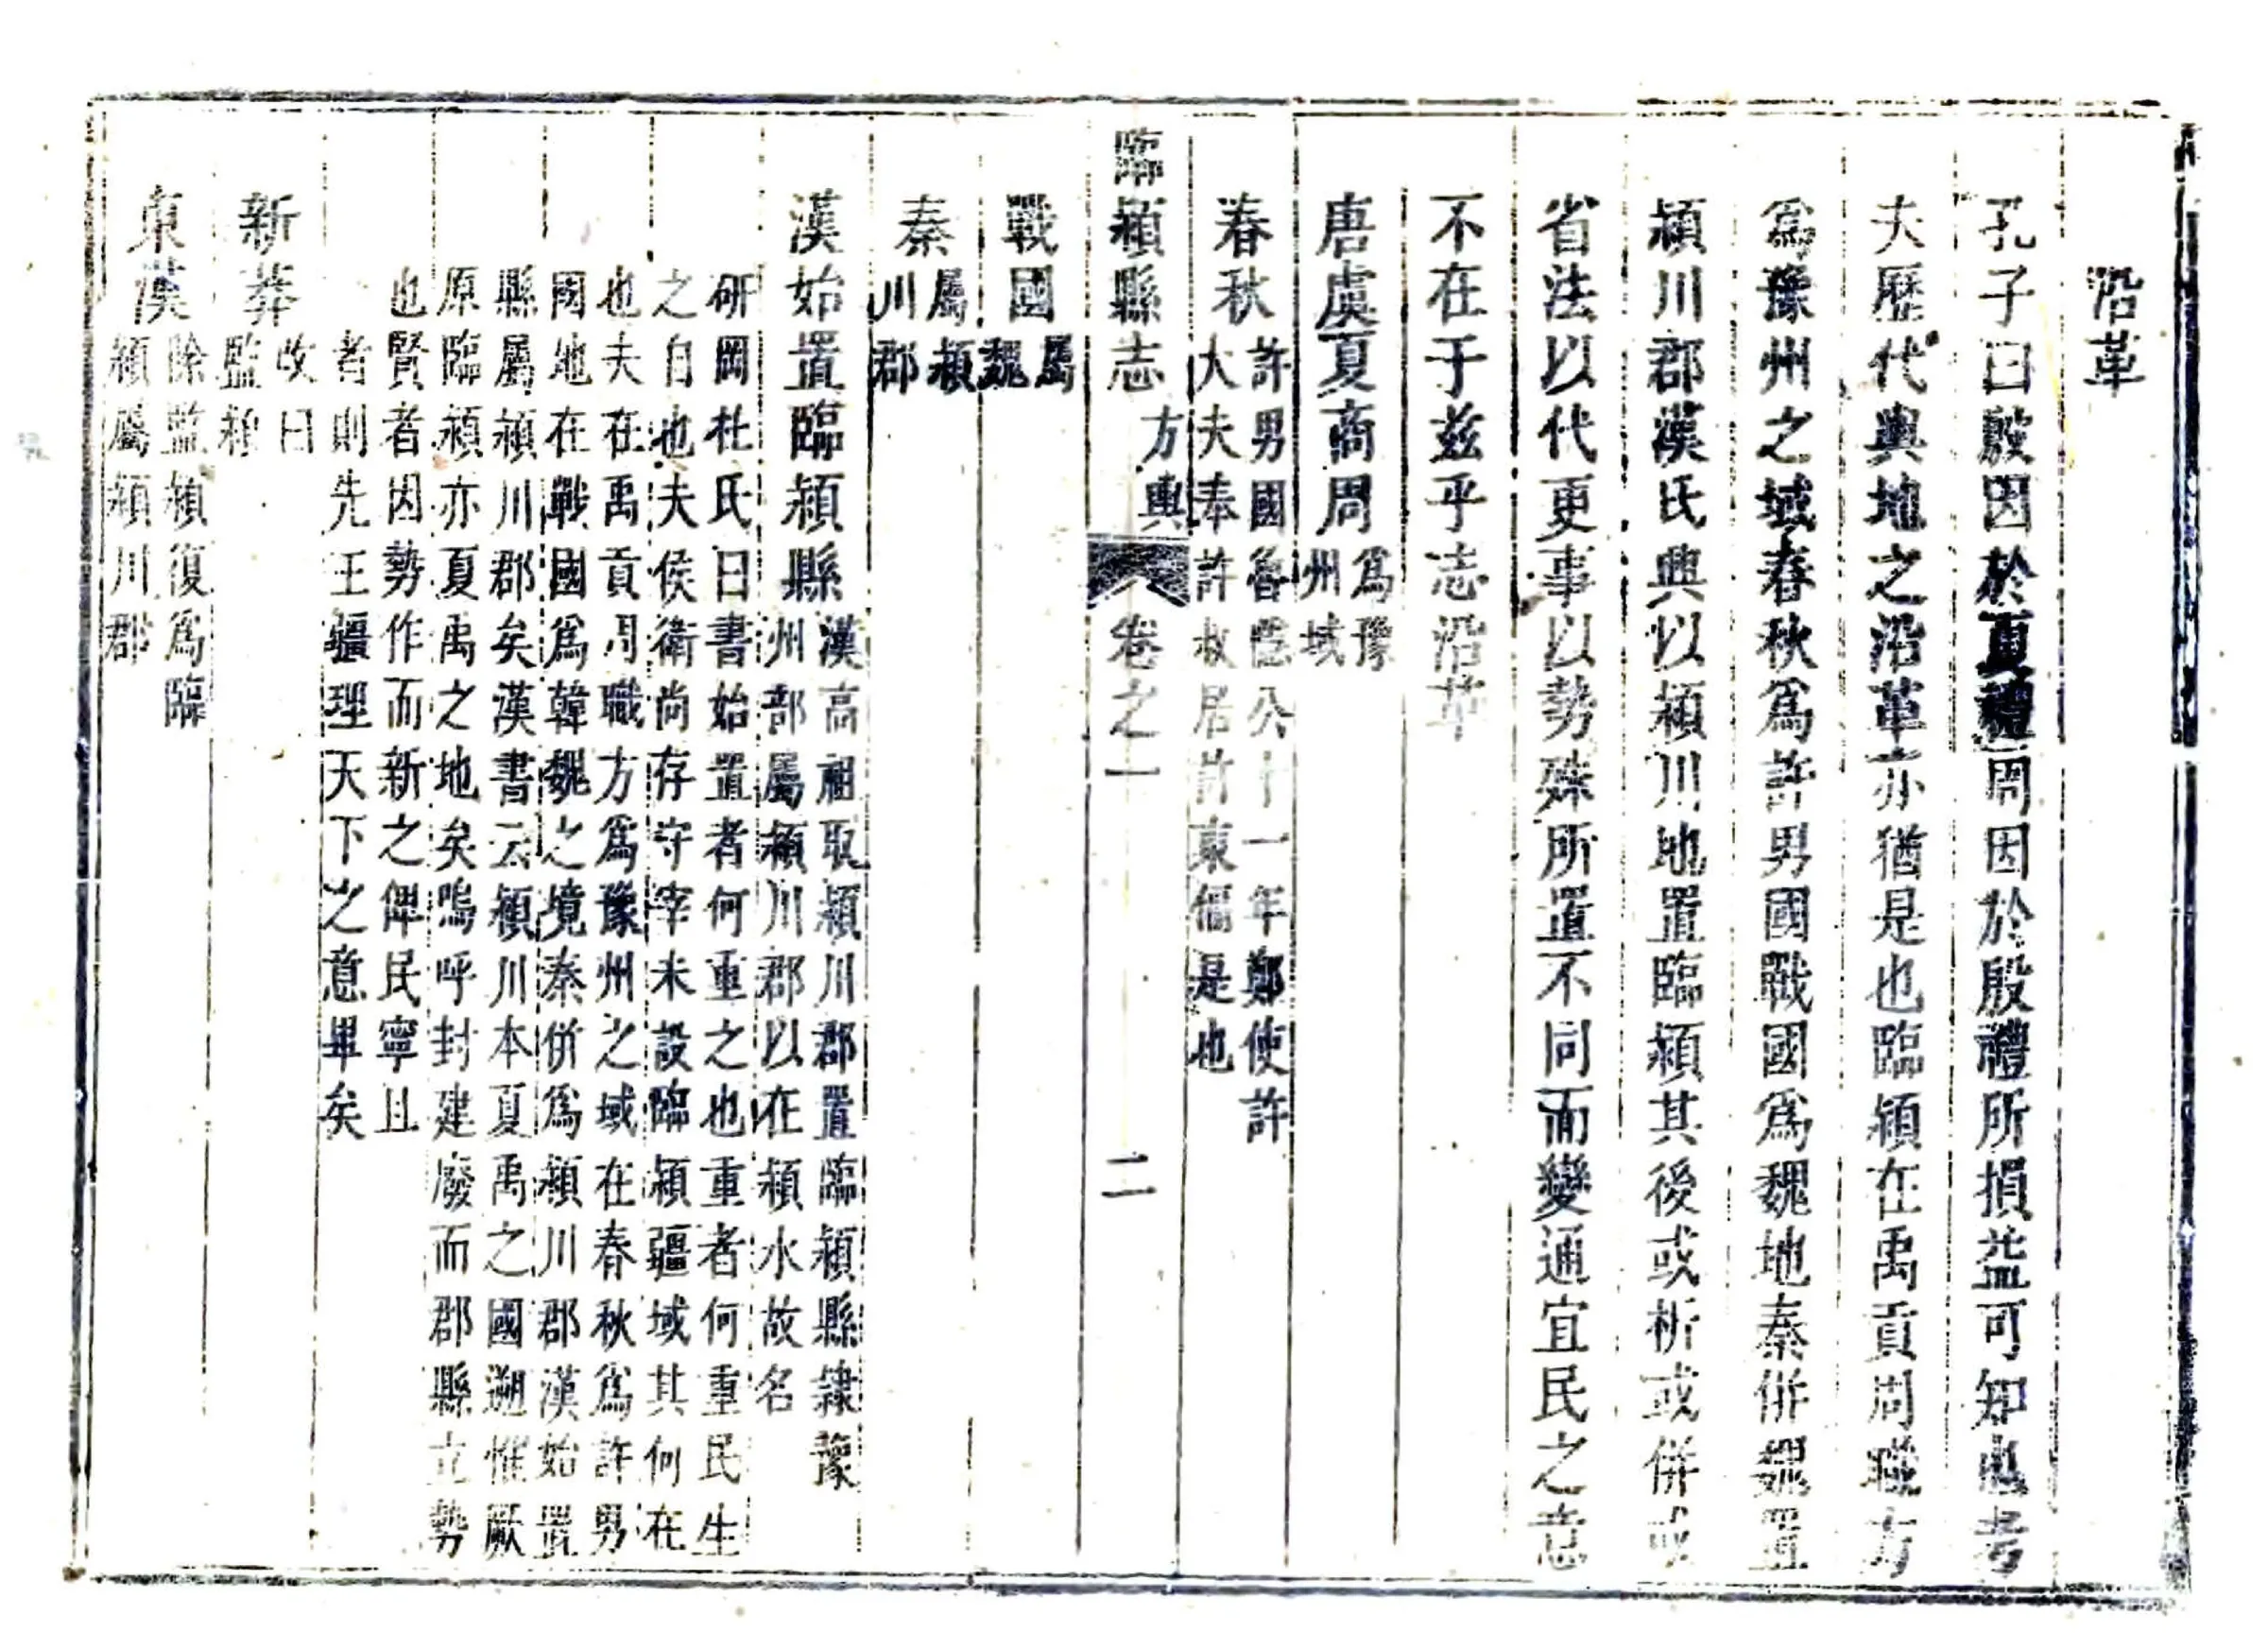 沿革
孔子曰殷因於夏禮周因於殷禮所損益可知也考
夫歷代輿地之沿革亦猶是也臨潁在禹貢周職方
爲豫州之域春秋爲許男國戰國爲魏地秦併魏置
潁川郡漢氏興以潁川地置臨潁其後或析或併或
省法以代更事以勢殊所置不同而變通宜民之意
不在于兹乎志沿革
唐虞夏商周
爲豫
州域
春秋
許男國魯隱公十一年鄭使許
大夫奉許叔居許東偏是也
臨潁縣志
方輿
卷之一
二
戰國
屬
魏
秦
屬潁
川郡
漢始置臨潁縣
漢高祖取潁川郡置臨潁縣隷豫
州部屬潁川郡以在潁水故名
研岡杜氏曰書始置者何重之也重者何重民生
之自也夫侯衛尚存守宰未設臨潁疆域其何在
也夫在禹貢周職方爲豫州之域在春秋爲許男
國地在戰國爲韓魏之境秦併爲潁川郡漢始置
縣屬潁川郡矣漢書云潁川本夏禹之國遡惟厥
原臨潁亦夏禹之地矣嗚呼封建廢而郡縣立勢
也賢者因勢作而新之俾民寧且
者則先王疆理天下之意畢矣
新莽
改曰
監潁
東漢
除監潁復爲臨
潁屬潁川郡